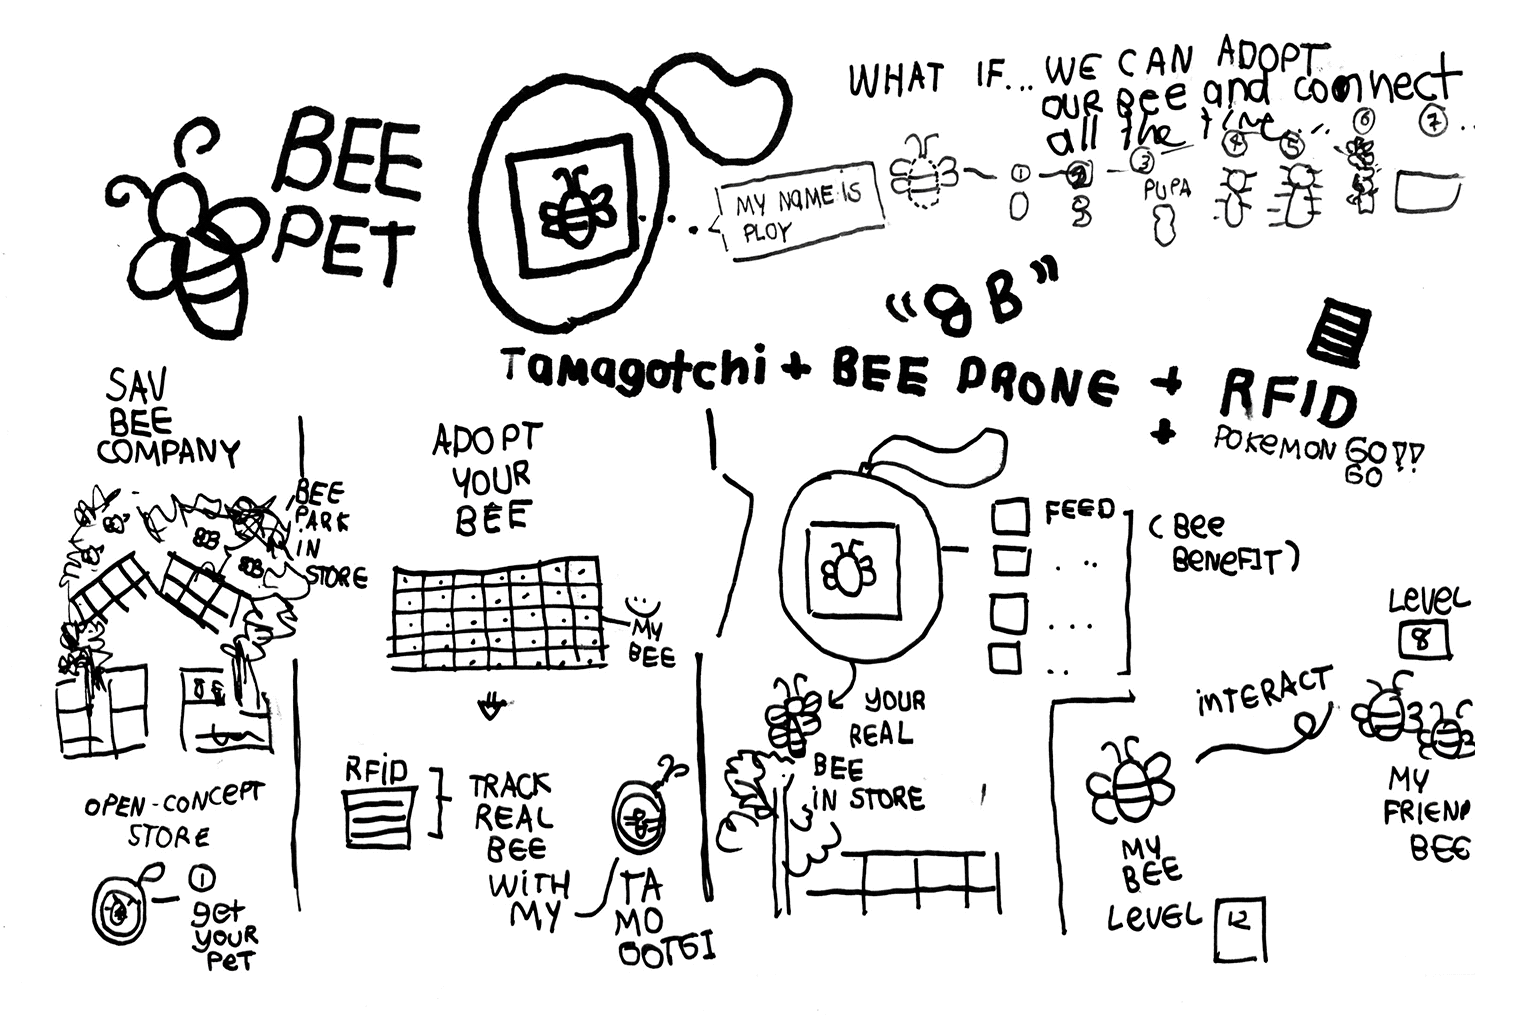 BEE
PET
WHAT IF... WE CAN ADOPT
OUR BEE and connect
all the time...
MY NAME IS
PLOY
1
2
3
4
5
6
7
PUPA
"8B"
Tamagotchi + BEE DRONE + RFID
+ POKEMON GO!!
GO
SAV
BEE
COMPANY
BEE
PARK
iN
STORE
OPEN-CONCEPT
STORE
1
get
YOUR
PeT
ADOPT
YOUR
BEE
MY
BEE
RFiD
TRACK
REAL
BEE
WiTH
MY
TA
MO
OOTGI
FEED
...
...
..
(Bee
BeNeFIT)
YOUR
REAL
BEE
iN STORE
iNTERACT
LEVEL
8
MY
FRIEND
BEE
MY
BEE
LEVEL 12